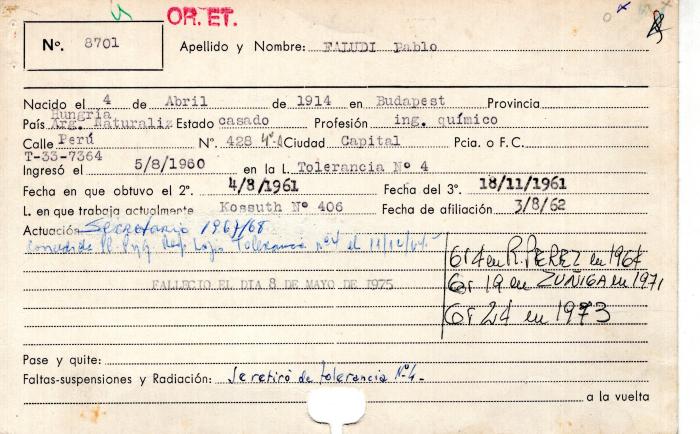 OR. ET.
Nº. 8701 Apellido y Nombre: FALUDI Pablo
Nacido el 4 de Abril de 1914 en Budapest Provincia
Hungria
País Arg. Naturaliz Estado casado Profesión ing. químico
Calle Perú Nº 428 4º A Ciudad Capital Pcia. o F.C.
T-33-7364
Ingresó el 5/8/1960 en la L. Tolerancia Nº 4
Fecha en que obtuvo el 2º. 4/8/1961 Fecha del 3º. 18/11/1961
L. en que trabaja actualmente Kossuth Nº 406 Fecha de afiliación 3/8/62
Actuación Secretario 1967/68
Tolerancia nº4 el 11/12/64
6r 4 en R. PEREZ en 1964
FALLECIO EL DIA 8 DE MAYO DE 1975
Gr 19 en ZUÑIGA en 1971
Gr 24 en 1973
Pase y quite:
Faltas-suspensiones y Radiación: Se retiró de tolerancia Nº4-
a la vuelta